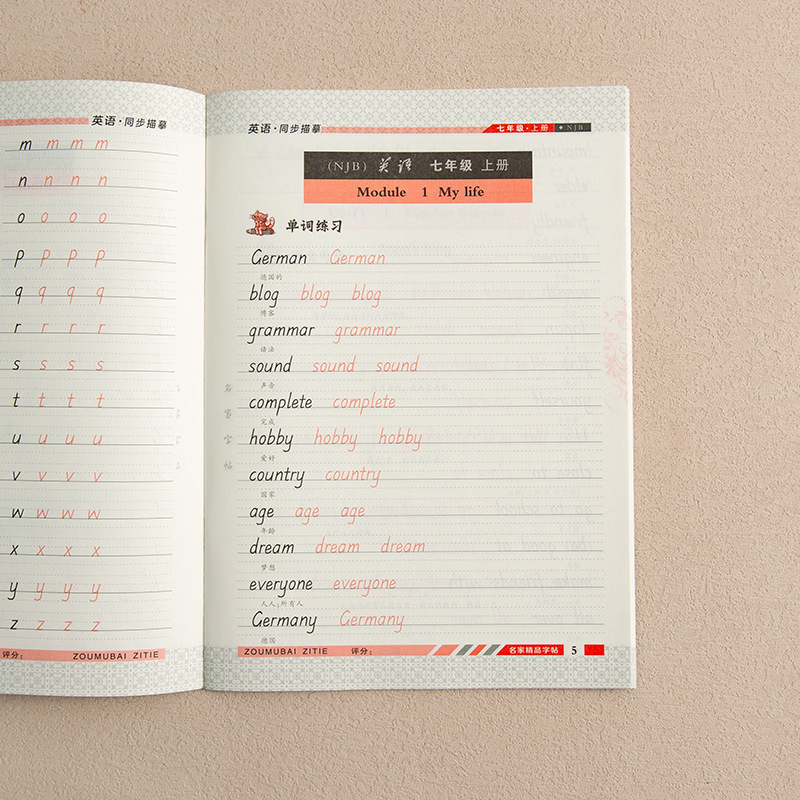 英语·同步描摹
m m m m
n n n n
o o o o
p p p p
q q q q
r r r r
s s s s
t t t t
u u u u
v v v v
w w w w
x x x x
y y y y
z z z z
评分:
ZOUMUBAI ZITIE
英语·同步描摹
七年级·上册 NJB
(NJB) 英语 七年级 上册
Module 1 My life
单词练习
German German
德国的
blog blog blog
博客
grammar grammar
语法
sound sound sound
声音
complete complete
完成
hobby hobby hobby
爱好
country country
国家
age age age
年龄
dream dream dream
梦想
everyone everyone
人人;所有人
Germany Germany
德国
名家字帖
ZOUMUBAI ZITIE 评分:
名家精品字帖 5